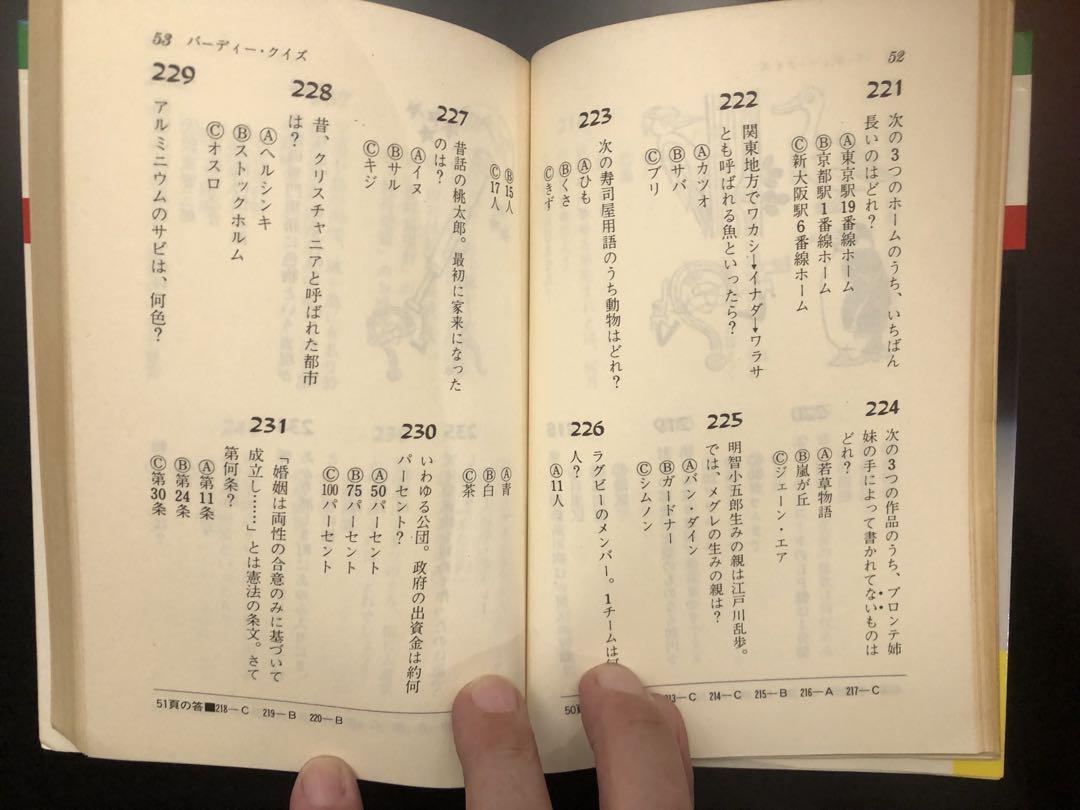 52
221
次の3つのホームのうち、いちばん
長いのはどれ？
Ⓐ東京駅19番線ホーム
Ⓑ京都駅1番線ホーム
Ⓒ新大阪駅6番線ホーム
222
関東地方でワカシ→イナダ→ワラサ
とも呼ばれる魚といったら？
Ⓐカツオ
Ⓑサバ
Ⓒブリ
223
次の寿司屋用語のうち動物はどれ？
Ⓐひも
Ⓑくさ
Ⓒきず
224
次の3つの作品のうち、ブロンテ姉
妹の手によって書かれてないものは
どれ？
Ⓐ若草物語
Ⓑ嵐が丘
Ⓒジェーン・エア
225
明智小五郎生みの親は江戸川乱歩。
では、メグレの生みの親は？
Ⓐバン・ダイン
Ⓑガードナー
Ⓒシムノン
226
ラグビーのメンバー。1チームは
人？
Ⓐ11人
50
213—C 214—C 215—B 216—A 217—C
53 パーディー・クイズ
Ⓑ15人
Ⓒ17人
227
昔話の桃太郎。最初に家来になった
のは？
Ⓐイヌ
Ⓑサル
Ⓒキジ
228
昔、クリスチャニアと呼ばれた都市
は？
Ⓐヘルシンキ
Ⓑストックホルム
Ⓒオスロ
229
アルミニウムのサビは、何色？
Ⓐ青
Ⓑ白
Ⓒ茶
230
いわゆる公団。政府の出資金は約何
パーセント？
Ⓐ50パーセント
Ⓑ75パーセント
Ⓒ100パーセント
231
「婚姻は両性の合意のみに基づいて
成立し……」とは憲法の条文。さて
第何条？
Ⓐ第11条
Ⓑ第24条
Ⓒ第30条
51頁の答■218—C 219—B 220—B